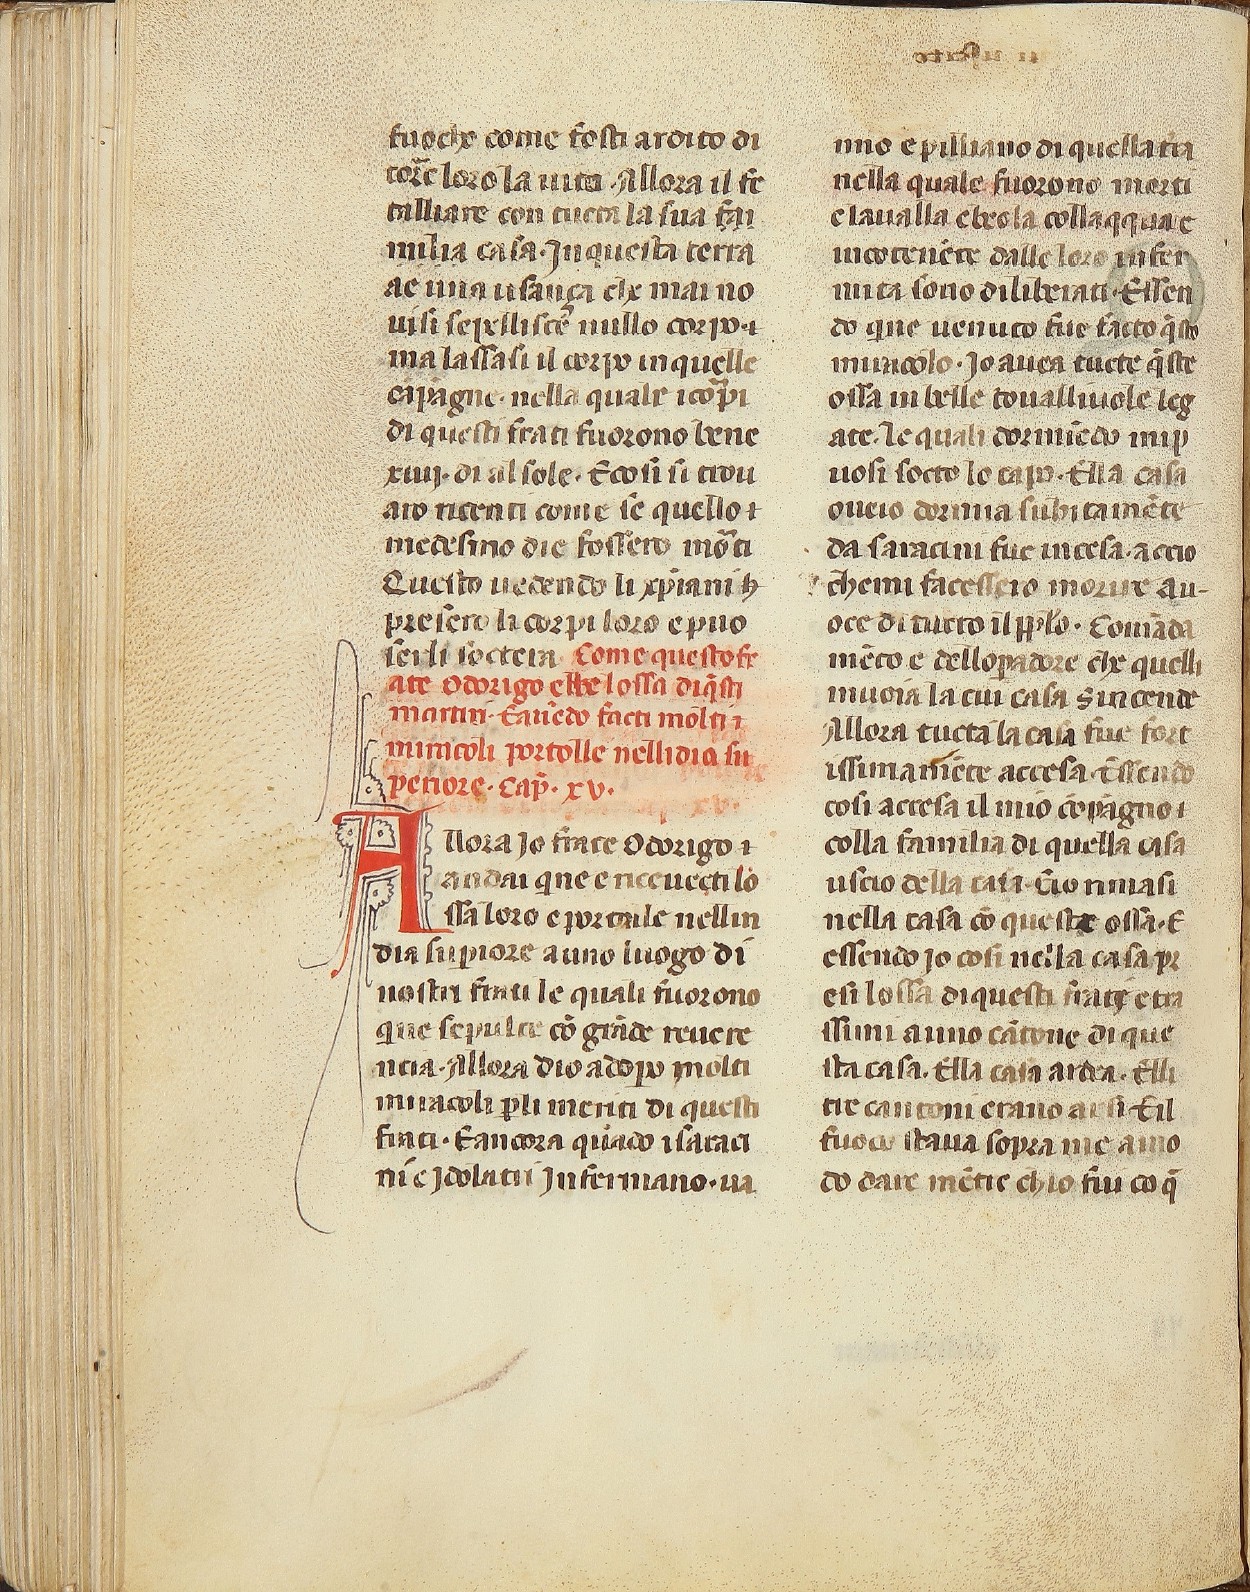 fuoche come fosti ardito di
torre loro la uita. Allora il fe
talliare con tucta la sua fai
milia casa. In questa terra
ae una usança che mai no
ui si sepelliscē nullo corpo ⁊
ma lassasi il corpo in quelle
cāpagne. nella quale i corpi
di questi frati fuorono bene
xiiij. di al sole. E cosi si trou
aro recenti come se quello ⁊
medesimo die fossero mōti
Questo uedendo li xp̄iani h
presero li corpi loro e puo
serli soctera. Come questo fr
ate Odorigo ebbe lossa di q̄sti
martiri. E auēdo facti molti ⁊
miracoli portolle nellidia su
periore. Cap̄. xv.
Allora Jo frate Odorigo ⁊
andai que e riceuecti lo
ssa loro e portaile nellin
dia supiore a uno luogo di
nostri frati le quali fuorono
que sepulte cō grāde reuere
ntia. Allora dio adopo molti
miracoli p̄ li meriti di questi
frati. E ancora quādo i saraci
ni e Jdolatri Jnfermano. ua
nno e pilliano di quella tra
nella quale fuorono morti
e laualla e beola coll aqqua e
incōtenēte dalle loro infer
mita sono diliberati. Essen
do que uenuto fue facto q̄sto
miracolo. Jo auea tucte q̄ste
ossa in belle toualliuole leg
ate. le quali dormiēdo mi p
uosi socto lo capo. Ella casa
oueio dormia subitamēte
da saracini fue incesa. accio
che mi facessero morire Au-
oce di tucto il pp̄lo. Comāda
mēto e dello padore che quelli
muoia la cui casa sincende
Allora tucta la casa fue fort
issimamēte accesa. Essendo
cosi accesa il mio cōpagno ⁊
colla familia di quella casa
uscio della casa. E io rimasi
nella casa cō queste ossa. E
essendo jo cosi nella casa pr
esi lossa di questi frati e tra
issimi a uno cātone di que
sta casa. Ella casa ardea. Elli
tre cantoni erano arsi. E il
fuoco staua sopra me a mo
do dare mētre chio fui co q̄